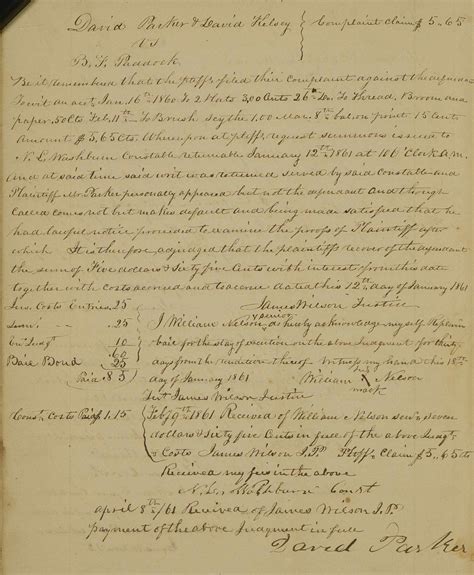 David Parker & David Kelsey } Complaint Claim $5.65
VS
B. F. Paddock
Be it remembered that the ptffs filed their Complaint against the defendant
To wit an act, Jan. 16th 1860 To 2 Hats 3,00 Cents 26th To Thread, Broom and
paper 50 Cts Feb. 11th To Brush Scythe 1.00 Mar. 8th 15 Cents
Amount $5,65 Cts. Whereupon at ptffs request summons issued to
N. L. Washburn Constable returnable January 12th 1861 at 10 O Clock A.m.
and at said time said writ was returned served by said Constable and
Plaintiff Mr Parker personally appeared but not the defendant and though
Called comes not but makes default and being made satisfied that he
had lawful notice proceeded to examine the proofs of Plaintiff after
which It is therefore adjudged that the plaintiffs recover of the defendant
the sum of Five dollars & Sixty five Cents with interest from this date
together with Costs accrued and to accrue dated this 12th day of January 1861
Jus. Costs Entries .25 James Wilson Justice
Sum's " " .25 I William Nelson senior do hereby acknowledge myself Replevin
En Judgt 10 bail for the stay of execution on the above Judgment for thirty
60 days from the rendition thereof Witness my hand this 18th
Bail Bond 25 day of January 1861 William his X mark Nelson
Paid .85 Test James Wilson Justice
Const. Costs Paid 1.15 Feby 9th 1861 Received of William Nelson sen'r seven
dollars & Sixty five Cents in full of the above Judgt
& Costs James Wilson J.P. Ptoffs Claim $5..65
Received my fees in the above
N. L. Washburn Const
april 8th/61 Received of James Wilson J.P.
payment of the above Judgment in full
David Parker